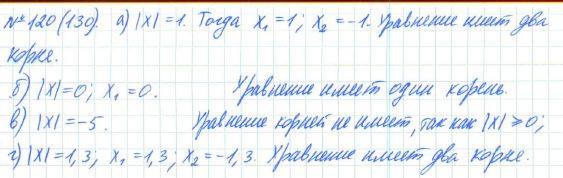 № 120 (130). а) |x| = 1. Тогда x₁ = 1; x₂ = -1. Уравнение имеет два
корне.
б) |x| = 0; x₁ = 0. Уравнение имеет один корень.
в) |x| = -5. Уравнение корней не имеет, так как |x| ⩾ 0;
г) |x| = 1,3; x₁ = 1,3; x₂ = -1,3. Уравнение имеет два корне.